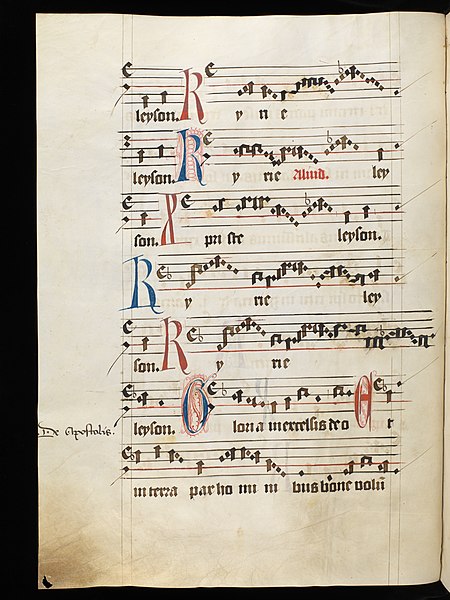 leyson. K y ri e
leyson. K y rie Aliud. ley
son. X pri ste leyson.
K y rie ley
son. K y rie
leyson. Gloria in excelsis deo Et
De Apostolis.
in terra pax ho mi ni bus bone volū